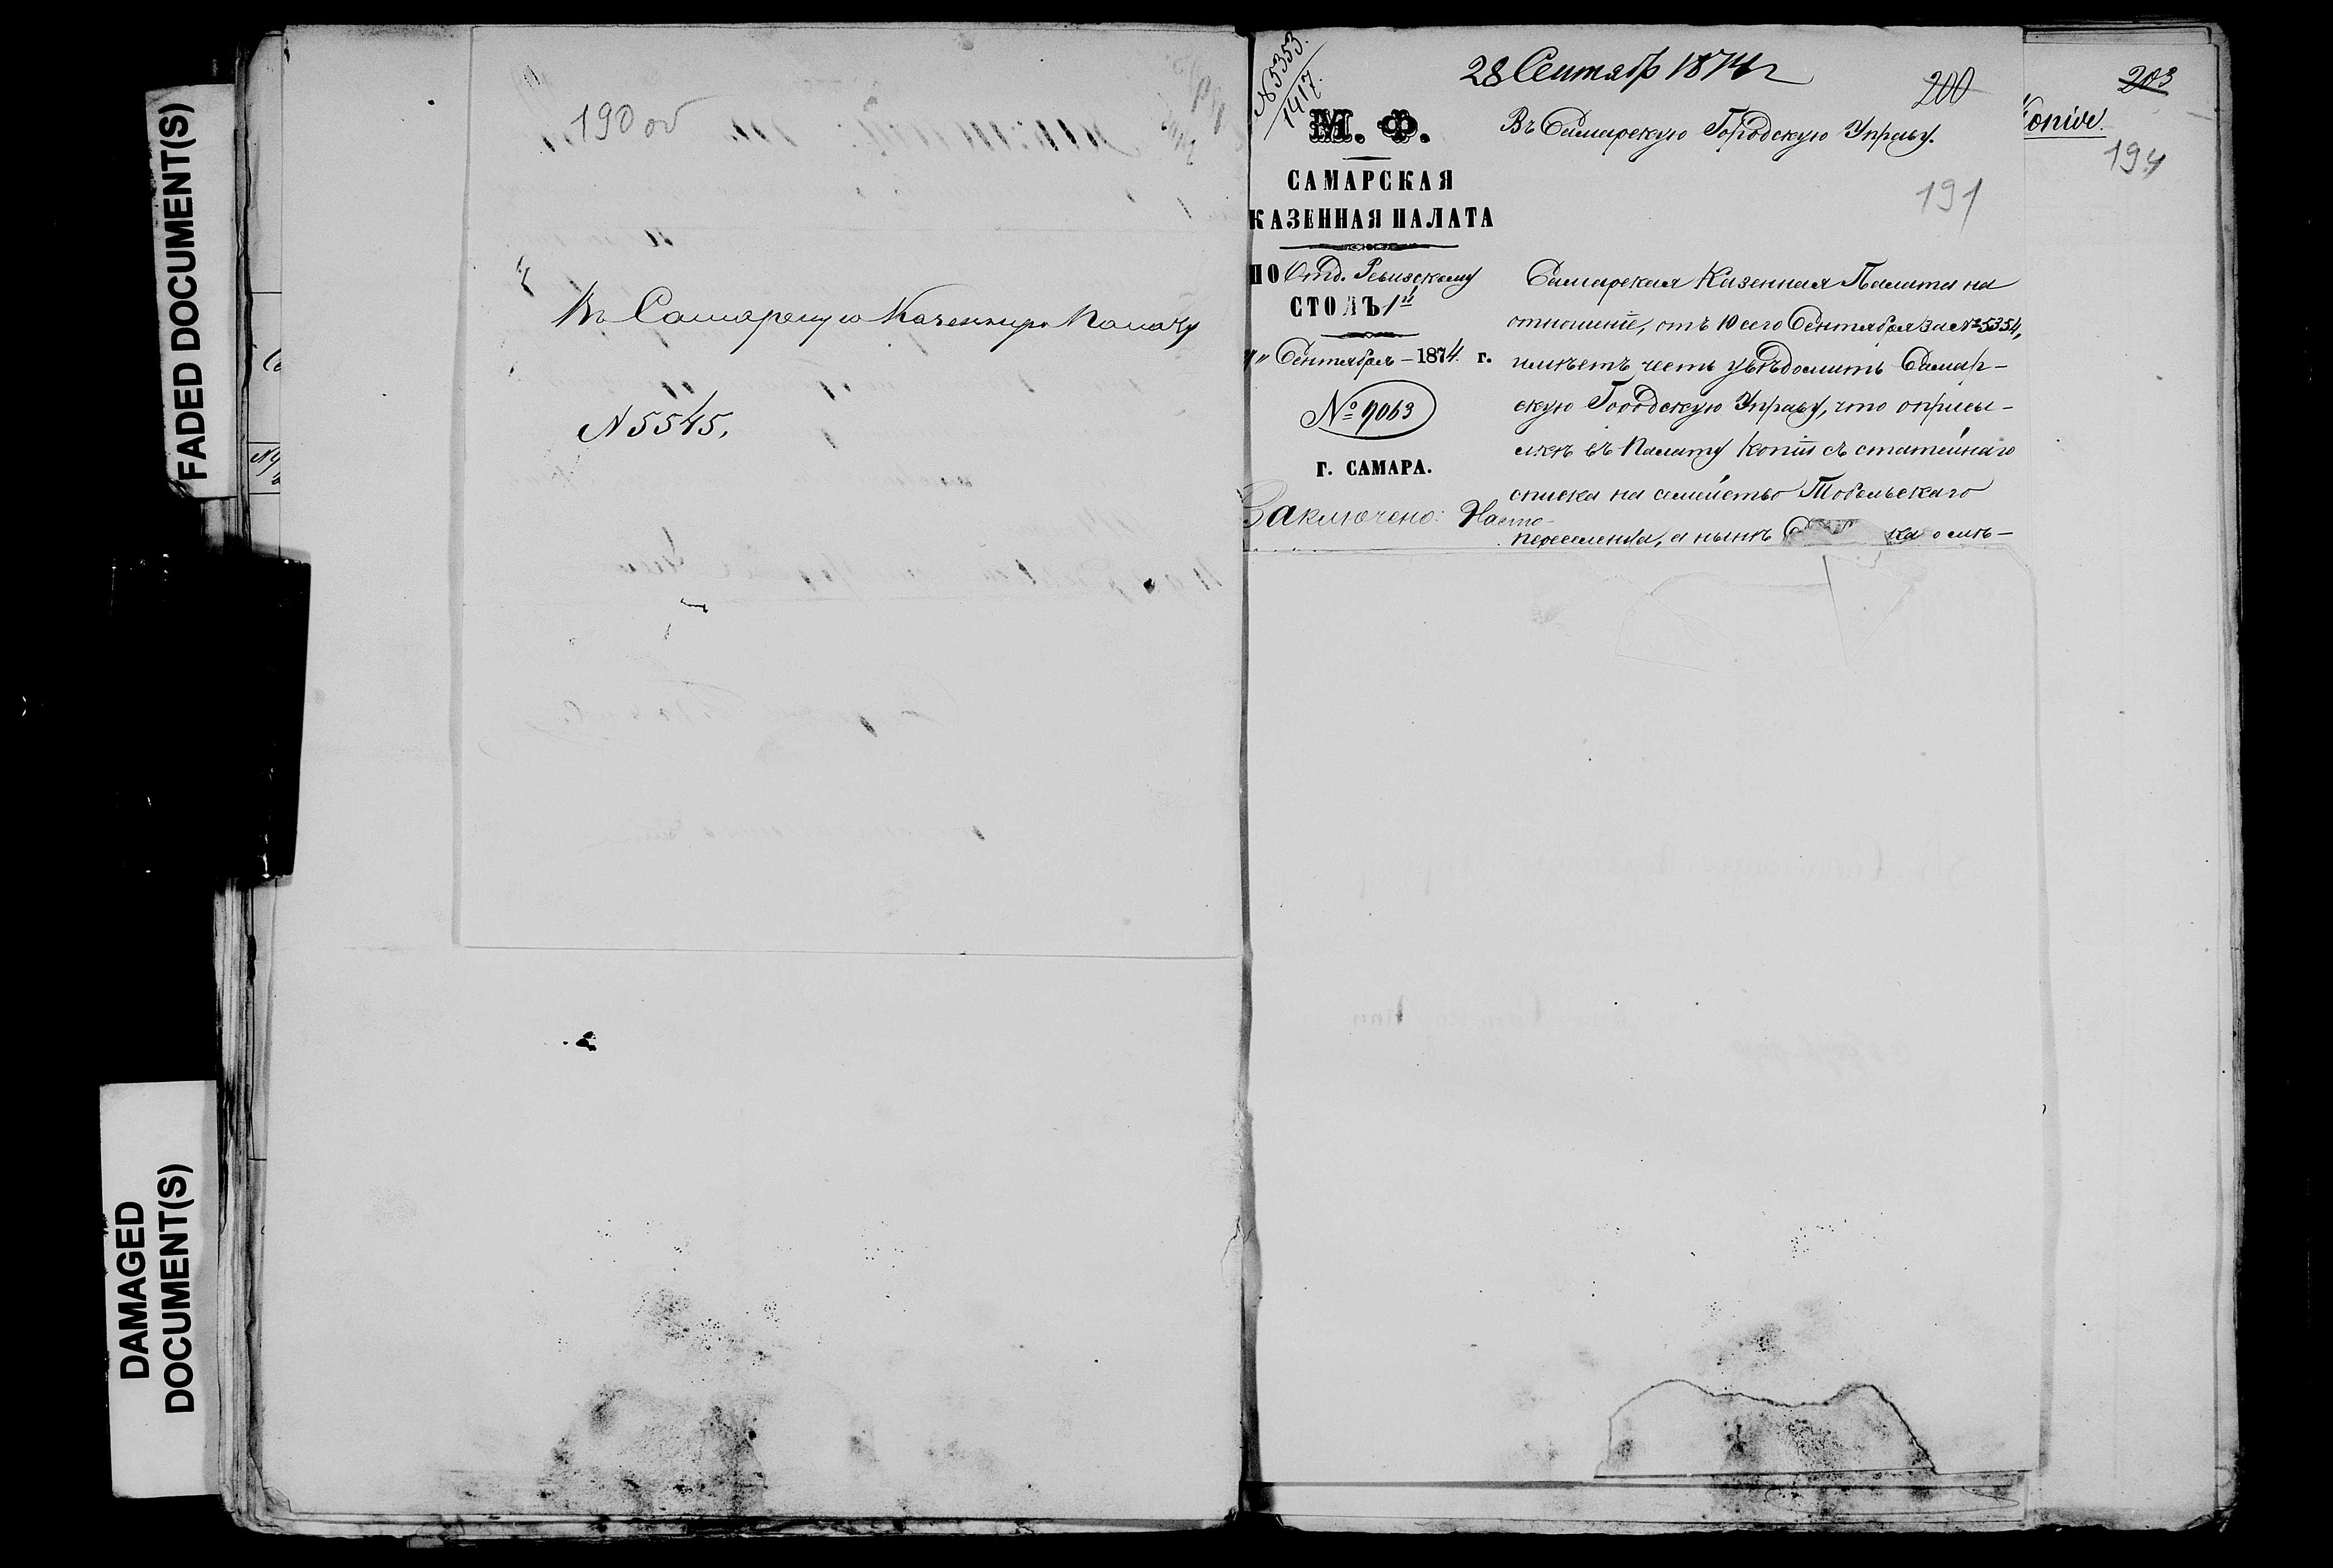 FADED DOCUMENT(S)
DAMAGED
DOCUMENT(S)
190 об
Въ Самарскую Казенную Палату
N 5545.
N 5353.
1417.
28 Сентябр 1874 г
200
М. Ф.
САМАРСКАЯ
КАЗЕННАЯ ПАЛАТА
ПО Отд. Ревизскому
СТОЛЪ 1й
Сентября 1874 г.
№ 9063
Г. САМАРА.
Заключено: Насто-
Въ Самарскую Городскую Управу.
191
Самарская Казенная Палата на
отношеніе, отъ 10 сего Сентября за № 5354,
имѣетъ честь увѣдомить Самар-
скую Городскую Управу, что о присы-
лкѣ въ Палату копіи съ статейнаго
списка на семейство Тобольскаго
переселенца, а нынѣ
203
194